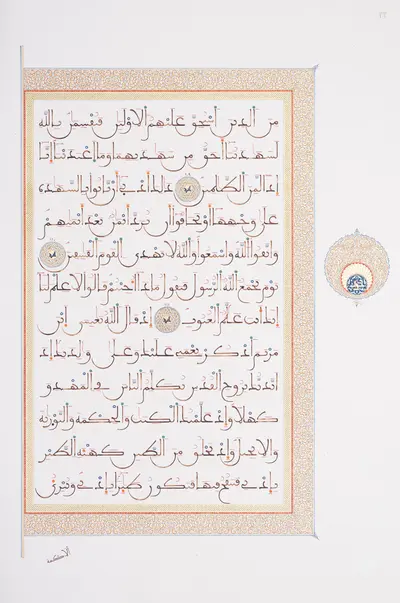 من الذين استحق عليهم الاولين فيقسمن بالله
لشهدتنا احق من شهدتهما وما اعتدينا انا
اذا لمن الظلمين ذلك ادنى ان ياتوا بالشهدة
على وجهها او يخافوا ان ترد ايمن بعد ايمنهم
واتقوا الله واسمعوا والله لا يهدي القوم الفسقين
يوم يجمع الله الرسل فيقول ماذا اجبتم قالوا لا علم لنا
انك انت علم الغيوب اذ قال الله يعيسى ابن
مريم اذكر نعمتي عليك وعلى والدتك اذ
ايدتك بروح القدس تكلم الناس في المهد و
كهلا واذ علمتك الكتب والحكمة والتورية
والانجيل واذ تخلق من الطين كهيئة الطير
باذني فتنفخ فيها فتكون طيرا باذني وتبرئ
الاكمه